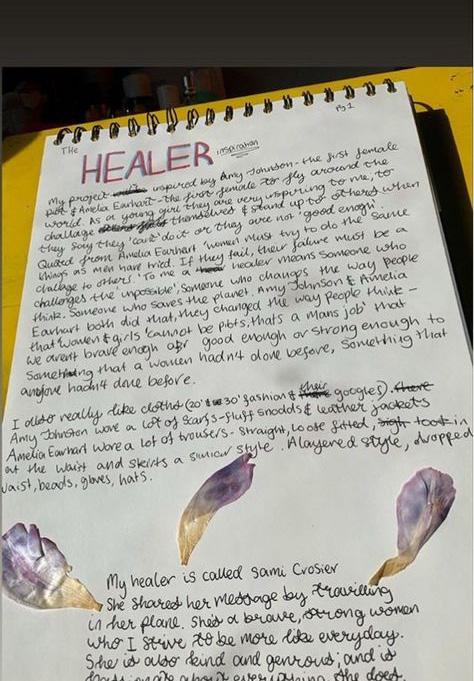 Pg 1
THE HEALER inspiration
My project inspired by Amy Johnson - the first female
& Amelia Earhart - the first female to fly around the
world. As a young girl they are very inspiring to me, to
challage themselves & stand up to others when
they say they 'cant' do it or they are not 'good enogh'.
Quoted from Amelia Earhart 'women must try to do the same
things as men have tried. If they fail, their failure must be a
challage to others'. To me a healer means someone who
challenges the 'unpossible', Someone who changes the way people
think. Someone who saves the planet. Amy Johnson & Amelia
Earhart both did that, they changed the way people think -
that women & girls 'cannot be pilots, thats a mans job' that
we arent brave enogh or good enough or strong enough to
Something that a women hadn't done before, Something that
anyone hadn't done before.
I also really like clothes (20's & 30' fashion & their googles).
Amy Johnston wore a lot of scarfs - fluff snodds & leather jackets
Amelia Earhart wore a lot of trousers - straight, loose fitted, took in
at the waist and skirts a similar style. A layered style, dropped
waist, beads, gloves, hats.
My healer is called Sami Crosier
She shared her message by travelling
in her plane. She's a brave, strong women
who I strive to be more like everyday.
She is also kind and genrous; and is
about everything she does.